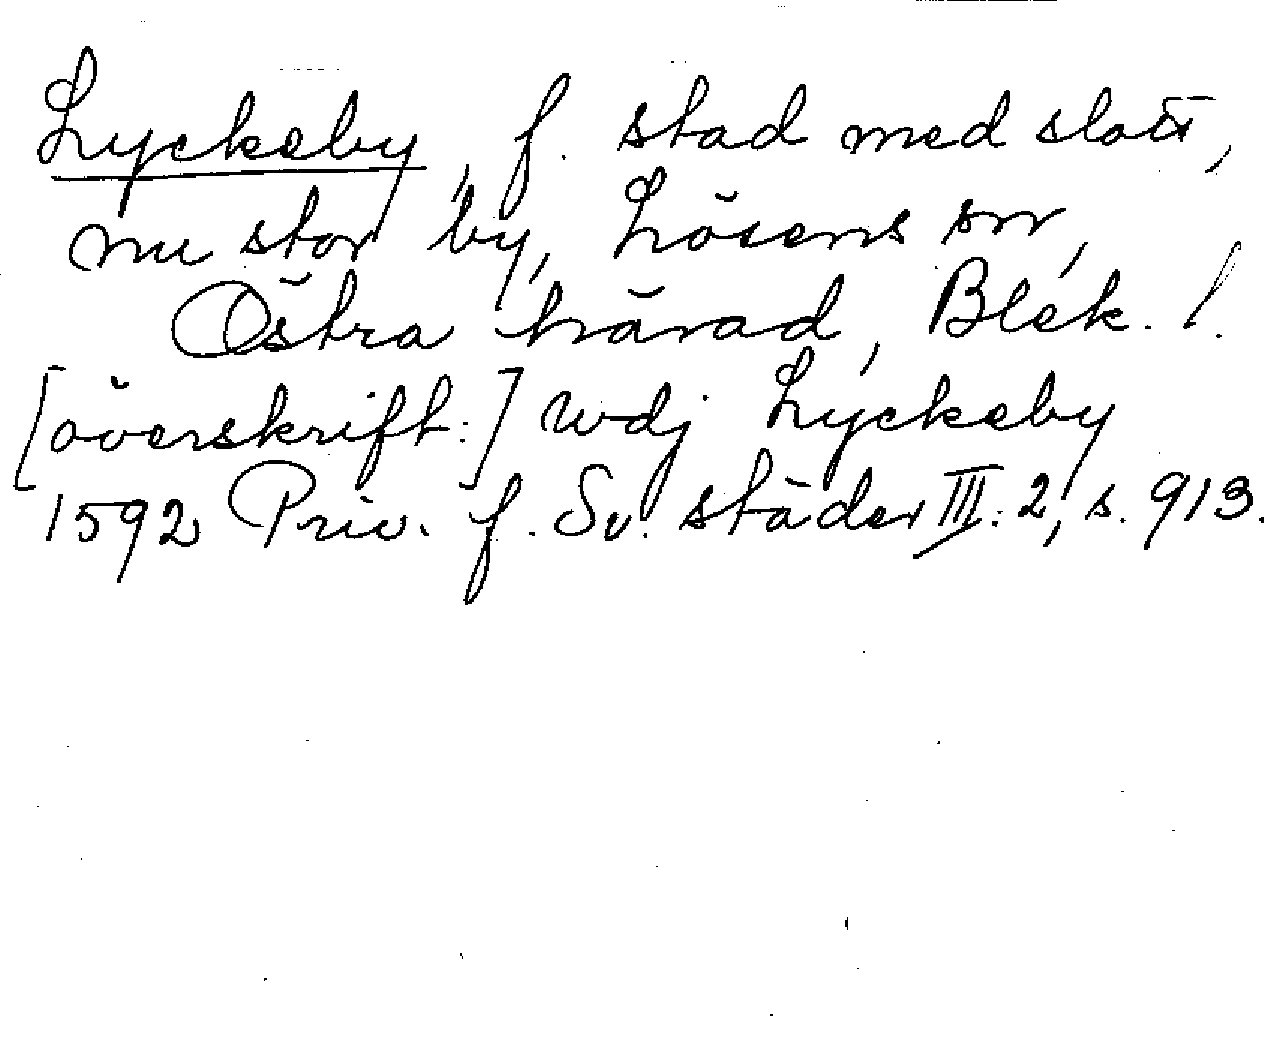 Lyckeby, f. stad med slott,
nu stor by, Lösens sn,
Östra härad, Blek. l.
[överskrift:] wdj Lyckeby
1592 Priv. f. Sv. städer III: 2, s. 913.